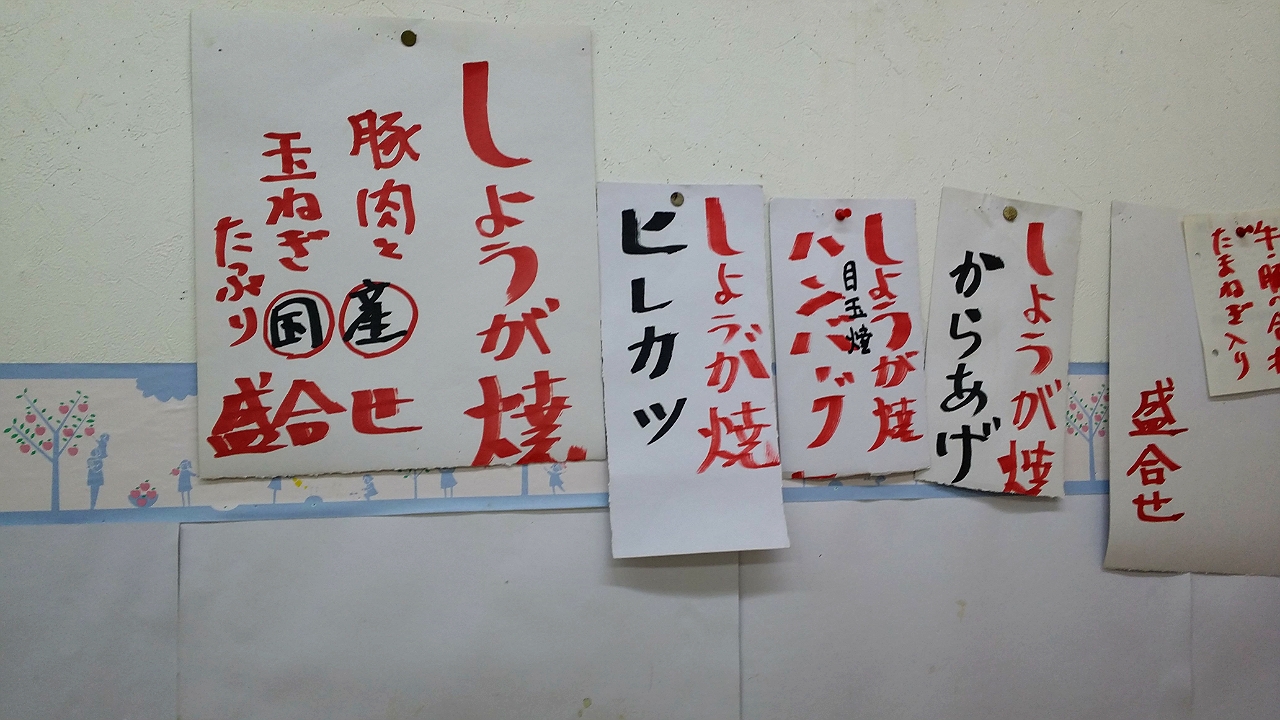 しょうが焼
豚肉と産
玉ねぎ国
たぷり
盛合せ
しょうが焼
ヒレカツ
しょうが焼
目玉焼
ハンバーグ
しょうが焼
からあげ
盛合せ
たまねぎ入り